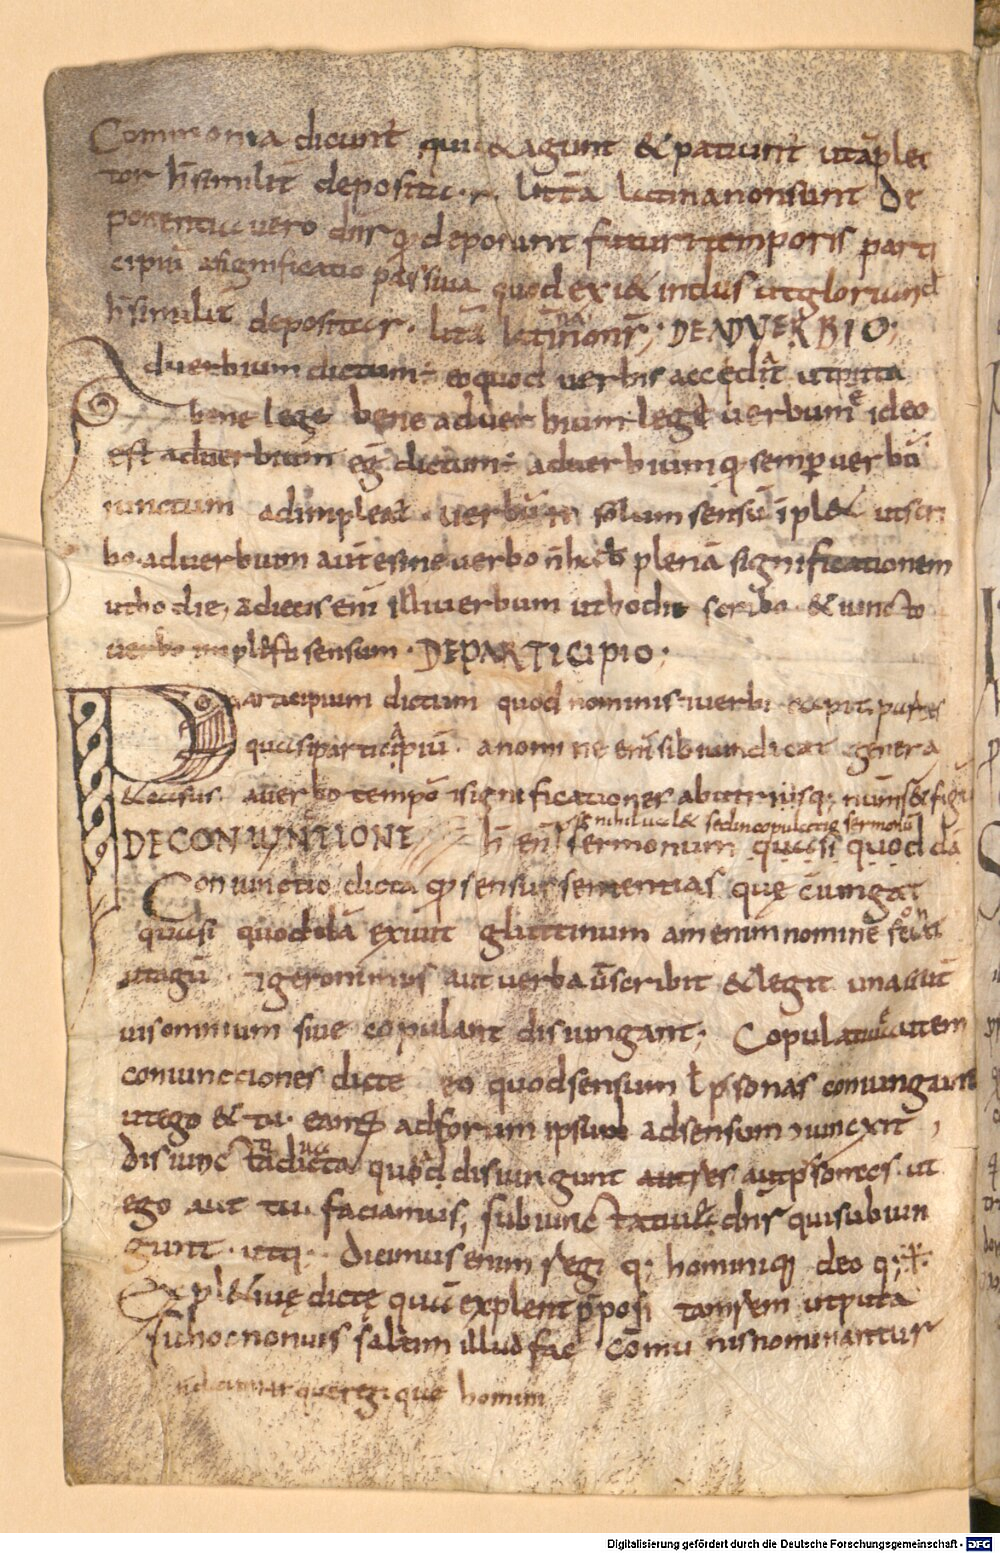 Commonia dicunt̄ qui & agunt & patiunt̄ utāplec
tor h̄ similit̄ deposita .r. litt̄a latina non sunt De
ponentia uero dn̄r q deponunt futuri temporis parti
cipiū asignificatio passiua quod exi& indus utgloriund
h̄ similit̄ depositar. litā latina non r̄; DE ADVERBIO;
Aduerbium dictum ÷ eo quod uerbis accedat utputa
bene lege bene aduerbium lege uerbum ē ideo
est aduerbium eḡ dictum ÷ aduerbium q semp uerbū
iunctum adimpleat. uerbum solum sensū īpl& utscri
bo. aduerbum aut̄ e sine uerbo n̄ h& plenā significationem
ut hodie, adiecis eni illi uerbum ut hodie scribo & iuncto
uerbo implesti sensum. DE PARTICIPIO.
Participium dictum quod nominis & uerbi capiat partes
quasi particapiū. a nomine eni sibi uindicat genera
& casus. a uerbo tempora & significationes ab utrisq; num̄ & figū
s nihil ual& sed in copulatiōe sermonū
DE CONIUNTIONE h̄ eni sermonum quasi quoddā
Coniunctio dicta q sensus sententias quę ciungat
quasi quoddā exiuit glutinum am enim nomine sociat
utagū. & geronimus aut uerba ū scribit & legit una aut
uis omnium siue copulant disiungant. Copulatiuę autem
coniuncciones dicte eo quod sensum ł psonas coniungant
ut ego & tu. eamq ad forum ipsum ad sensum nunc exit,
disiunctiua dicta quod disiungunt aut res aut psonas. ut
ego aut tu. faciamus, subiunctatiuę dn̄r qui subiun
gunt. utq. dicimus enim regi q; hominiq deo q;
Expl&iuę dictę quū explent pposi tam rem utputa
si hoc non uis saltim illud fac Comunis nominantur
ndicamur que regi que homini